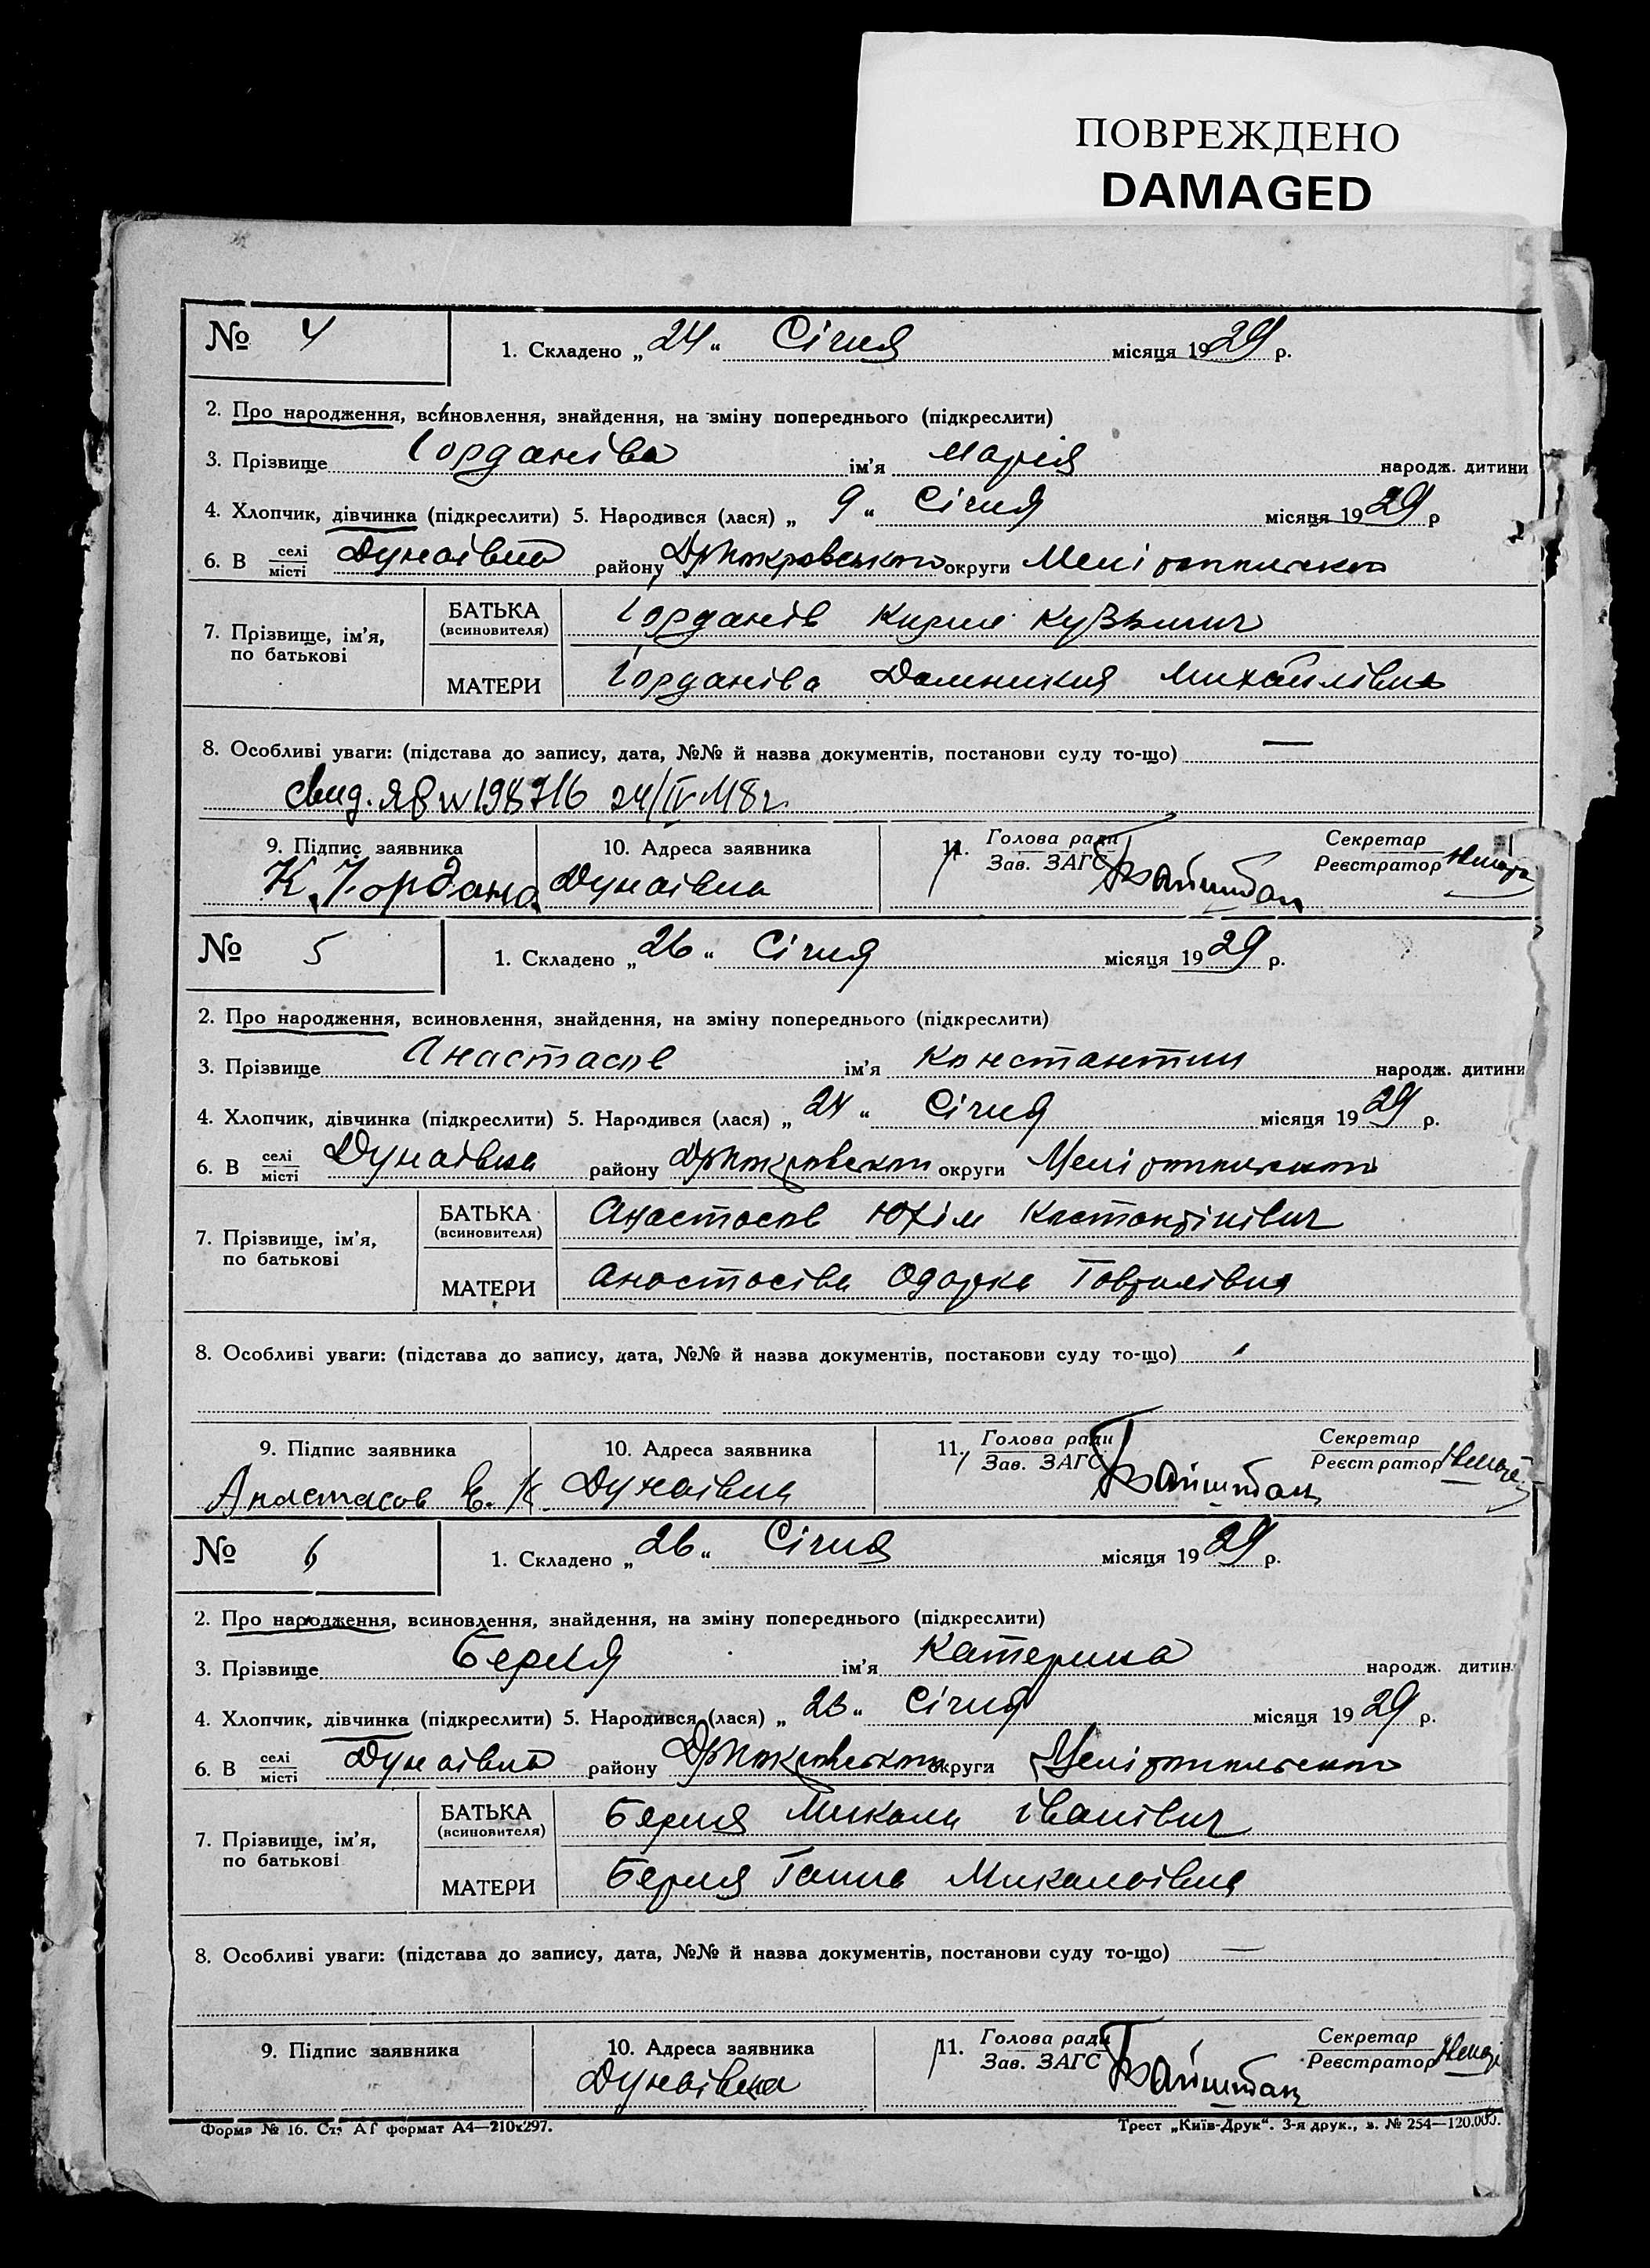 ПОВРЕЖДЕНО
DAMAGED
№ 4
1. Складено „24“ Січня місяця 1929 р.
2. Про народження, всиновлення, знайдення, на зміну попереднього (підкреслити)
3. Прізвище Іорданіва ім’я Марія народж. дитини
4. Хлопчик, дівчинка (підкреслити) 5. Народився (лася) „9“ Січня місяця 1929 р
6. В селі місті Дунаівка району округи
7. Прізвище, ім’я, по батькові
БАТЬКА (всиновителя) Іорданів Кирил Кузьмич
МАТЕРИ Іорданіва Домникия Михайлівна
8. Особливі уваги: (підстава до запису, дата, №№ й назва документів, постанови суду то-що) —
свид. ЯБ №
9. Підпис заявника 10. Адреса заявника 11. Голова ради Зав. ЗАГС Секретар Реєстратор
К. Іордано Дунаівка
№ 5
1. Складено „26“ Січня місяця 1929 р.
2. Про народження, всиновлення, знайдення, на зміну попереднього (підкреслити)
3. Прізвище Анастасов ім’я Константин народж. дитини
4. Хлопчик, дівчинка (підкреслити) 5. Народився (лася) „24“ Січня місяця 1929 р.
6. В селі місті Дунаівка району округи
7. Прізвище, ім’я, по батькові
БАТЬКА (всиновителя) Анастасов Юхім
МАТЕРИ Анастасіва Одарка Гаврилівна
8. Особливі уваги: (підстава до запису, дата, №№ й назва документів, постанови суду то-що)
9. Підпис заявника 10. Адреса заявника 11. Голова ради Зав. ЗАГС Секретар Реєстратор
Анастасов Е. К. Дунаівка
№ 6
1. Складено „26“ Січня місяця 1929 р.
2. Про народження, всиновлення, знайдення, на зміну попереднього (підкреслити)
3. Прізвище Берия ім’я Катерина народж. дитин
4. Хлопчик, дівчинка (підкреслити) 5. Народився (лася) „23“ Січня місяця 1929 р.
6. В селі місті Дунаівка району округи
7. Прізвище, ім’я, по батькові
БАТЬКА (всиновителя) Берия Микола Іванівич
МАТЕРИ Берия Ганна Миколаівна
8. Особливі уваги: (підстава до запису, дата, №№ й назва документів, постанови суду то-що) —
9. Підпис заявника 10. Адреса заявника 11. Голова ради Зав. ЗАГС Секретар Реєстратор
Дунаівка
Форма № 16. Ст. АГ формат А4—210х297.
Трест „Київ-Друк“. 3-я друк., з. № 254—120.000.